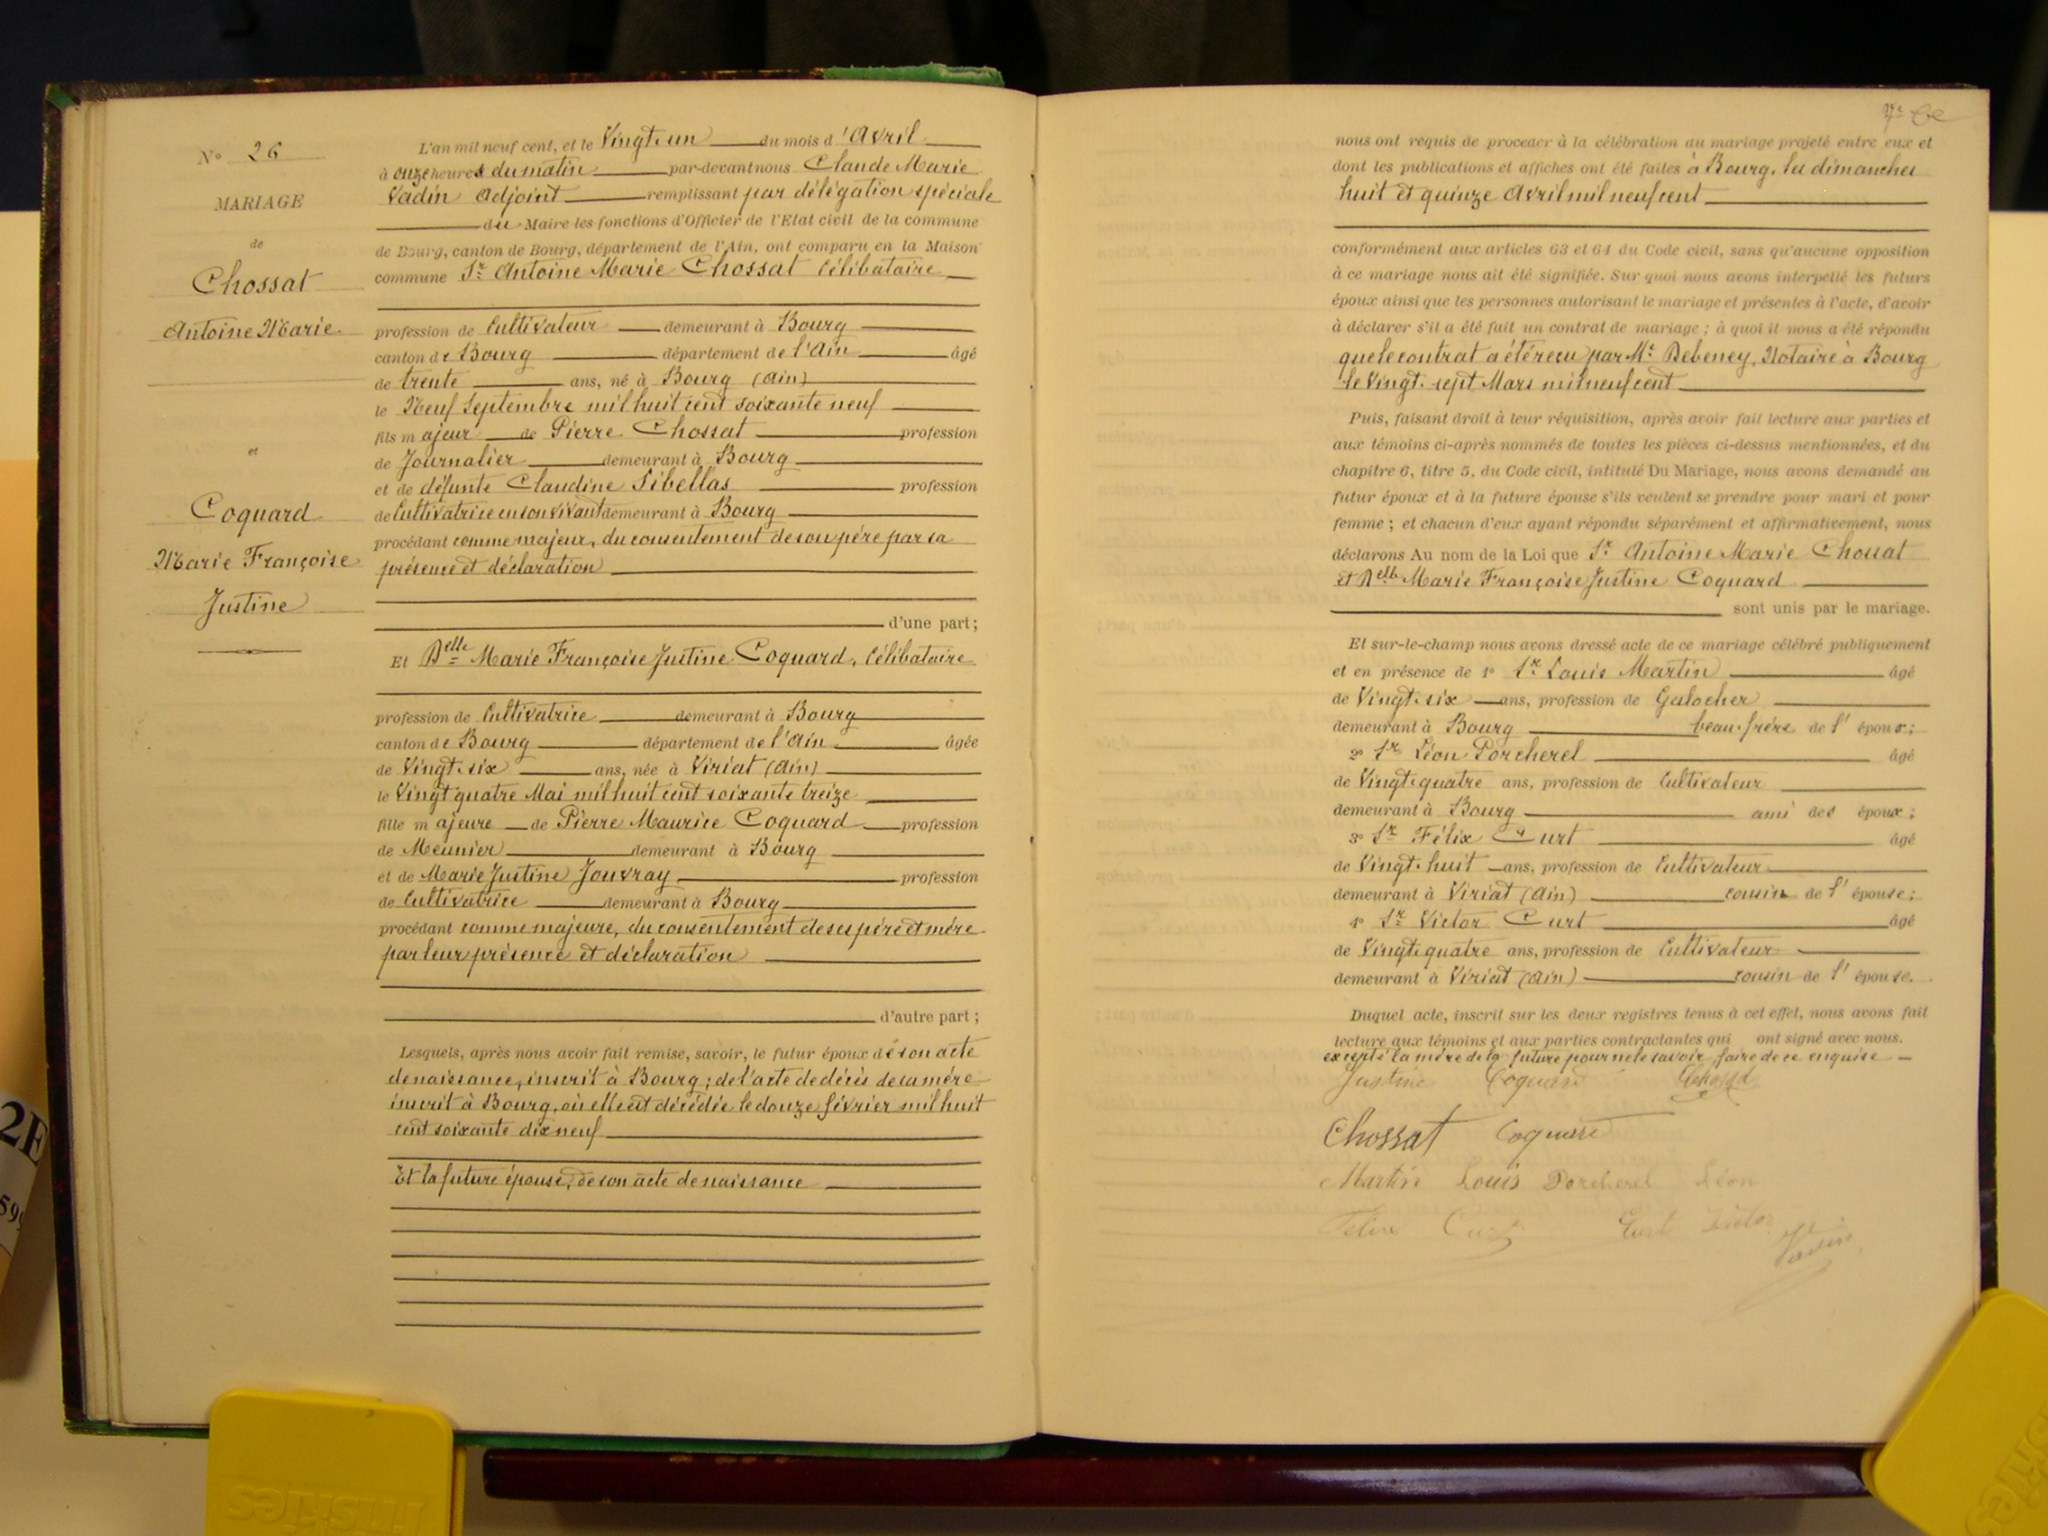 N° 26
MARIAGE
de
Chossat
Antoine Marie
et
Coquard
Marie Françoise
Justine
L'an mil neuf cent, et le Vingt-un du mois d'Avril
à onze heures du matin par-devant nous Claude Marie
Vadin Adjoint remplissant par délégation spéciale
du Maire les fonctions d'Officier de l'Etat civil de la commune
de Bourg, canton de Bourg, département de l'Ain, ont comparu en la Maison
commune Sr Antoine Marie Chossat célibataire
profession de Cultivateur demeurant à Bourg
canton de Bourg département de l'Ain âgé
de trente ans, né à Bourg (Ain)
le Neuf Septembre mil huit cent soixante neuf
fils majeur de Pierre Chossat profession
de Journalier demeurant à Bourg
et de défunte Claudine Sibellas profession
de Cultivatrice en son vivant demeurant à Bourg
procédant comme majeur, du consentement de son père par sa
présence et déclaration
d'une part;
Et Delle Marie Françoise Justine Coquard, célibataire
profession de Cultivatrice demeurant à Bourg
canton de Bourg département de l'Ain âgée
de Vingt-six ans, née à Viriat (Ain)
le Vingt quatre Mai mil huit cent soixante treize
fille majeure de Pierre Maurice Coquard profession
de Meunier demeurant à Bourg
et de Marie Justine Jouvray profession
de Cultivatrice demeurant à Bourg
procédant comme majeure, du consentement de ses père et mère
par leur présence et déclaration
d'autre part;
Lesquels, après nous avoir fait remise, savoir, le futur époux de son acte
de naissance, inscrit à Bourg; de l'acte de décès de sa mère
inscrit à Bourg, où elle est décédée le douze février mil huit
cent soixante dix neuf
Et la future épouse, de son acte de naissance
nous ont requis de procéder à la célébration du mariage projeté entre eux et
dont les publications et affiches ont été faites à Bourg, les dimanches
huit et quinze Avril mil neuf cent
conformément aux articles 63 et 64 du Code civil, sans qu'aucune opposition
à ce mariage nous ait été signifiée. Sur quoi nous avons interpellé les futurs
époux ainsi que les personnes autorisant le mariage et présentes à l'acte, d'avoir
à déclarer s'il a été fait un contrat de mariage; à quoi il nous a été répondu
que le contrat a été reçu par Me Debeney, Notaire à Bourg
le Vingt-sept Mars mil neuf cent
Puis, faisant droit à leur réquisition, après avoir fait lecture aux parties et
aux témoins ci-après nommés de toutes les pièces ci-dessus mentionnées, et du
chapitre 6, titre 5, du Code civil, intitulé Du Mariage, nous avons demandé au
futur époux et à la future épouse s'ils veulent se prendre pour mari et pour
femme; et chacun d'eux ayant répondu séparément et affirmativement, nous
déclarons Au nom de la Loi que Sr Antoine Marie Chossat
et Delle Marie Françoise Justine Coquard
sont unis par le mariage.
Et sur-le-champ nous avons dressé acte de ce mariage célébré publiquement
et en présence de 1° Sr Louis Martin âgé
de Vingt-six ans, profession de Galocher
demeurant à Bourg beau-frère de l'époux;
2° Sr Léon Porcherel âgé
de Vingt-quatre ans, profession de Cultivateur
demeurant à Bourg ami des époux;
3° Sr Félix Curt âgé
de Vingt-huit ans, profession de Cultivateur
demeurant à Viriat (Ain) cousin de l'épouse;
4° Sr Victor Curt âgé
de Vingt-quatre ans, profession de Cultivateur
demeurant à Viriat (Ain) cousin de l'épouse.
Duquel acte, inscrit sur les deux registres tenus à cet effet, nous avons fait
lecture aux témoins et aux parties contractantes qui ont signé avec nous.
excepté la mère de la future pour ne le savoir faire de ce enquise
Justine Coquard Chossat
Chossat Coquard
Martin Louis Porcherel Léon
Félix Curt Curt Victor
Vadin
2E